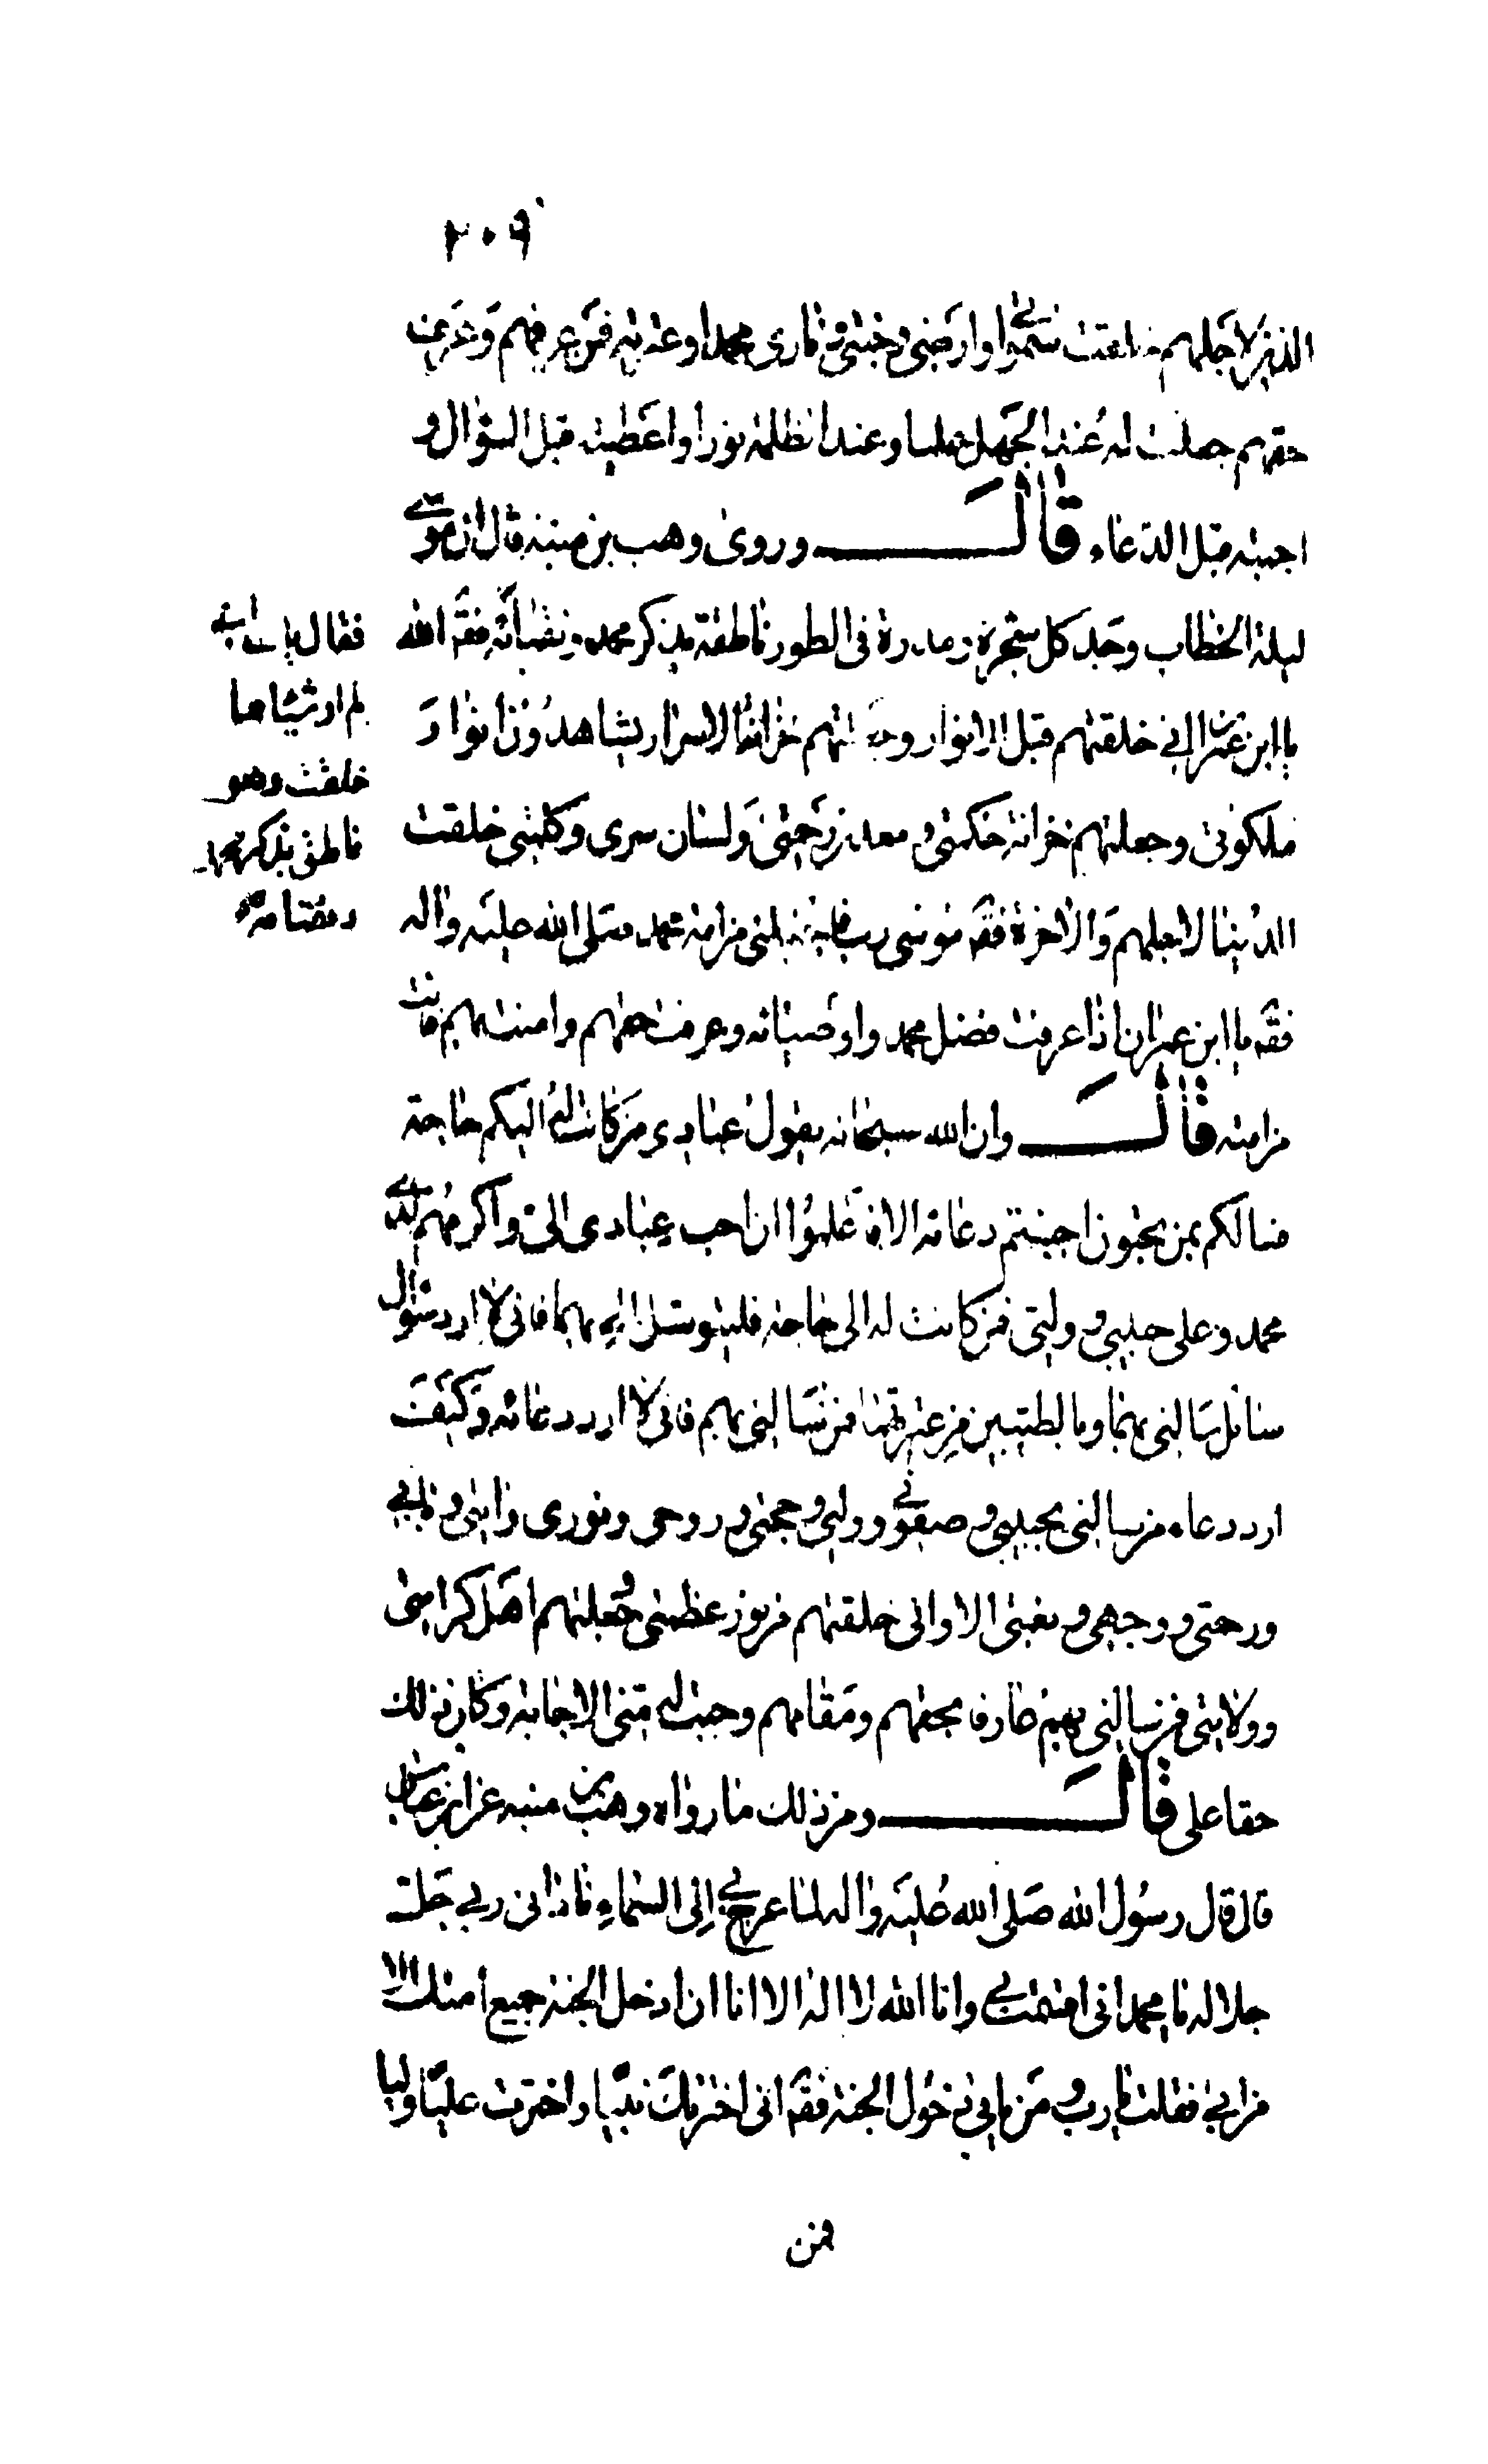 ٢٠٩
الذين لاجلهم خلقت سمواتي وارضي وجنتي وناري محمدا وعترته فمن عرفهم وعرف
حقهم جعلت له عند الجهل علما وعند الظلمة نورا واعطيته قبل السؤال و
اجبته قبل الدعاء قال وروى وهب بن منبه قال ان موسى
ليلة الخطاب وجد كل شجرة ومدرة في الطور ناطقة بذكر محمد ونقبائه فقه الله
يا ابن عمران اني خلقتهم قبل الانوار وجعلتهم خزانة الاسرار يشاهدون انوار
ملكوتي وجعلتهم خزانة حكمتي ومعدن رحمتي ولسان سري وكلمتي خلقت
الدنيا لاجلهم والاخرة فقه موسى رب فاجعلني من امة محمد صلى الله عليه واله
فقه يا ابن عمران اذا عرفت فضل محمد واوصيائه وعرفت حقهم وامنت بهم فانت
من امته قال وان الله سبحانه يقول عبادي من كانت له اليكم حاجة
فسالكم بمن تحبون اجبتم دعائه الا فاعلموا ان احب عبادي الي واكرمهم لدي
محمد وعلي حبيبي ووليي فمن كانت له الي حاجة فليتوسل الي بهما فاني لا ارد سؤال
سائل سالني بهما وبالطيبين من عترتهما فمن سالني بهم فاني لا ارد دعائه وكيف
ارد دعاء من سالني بحبيبي وصفوتي ووليي وحجتي وروحي ونوري وايتي وبابي
ورحمتي ووجهي ونعمتي الا واني خلقتهم من نور عظمتي وجعلتهم اهل كرامتي
وولايتي فمن سالني بهم عارفا بحقهم ومقامهم وجبت له مني الاجابة وكان ذلك
حقا علي قال ومن ذلك ما رواه وهب بن منبه عن ابن عباس
قال قال رسول الله صلى الله عليه واله لما عرج بي الى السماء ناداني ربي جل
جلاله يا محمد اني اقسمت بي وانا الله لا اله الا انا ان ادخل الجنة جميع امتك الا
من ابى فقلت يا رب ومن يابى دخول الجنة فقه اني اخترتك نبيا واخترت عليا وليا
فمن
فقال يا
لم ار شيئا مما
خلقت وهو
ناطق بذكر محمد
ونقبائه